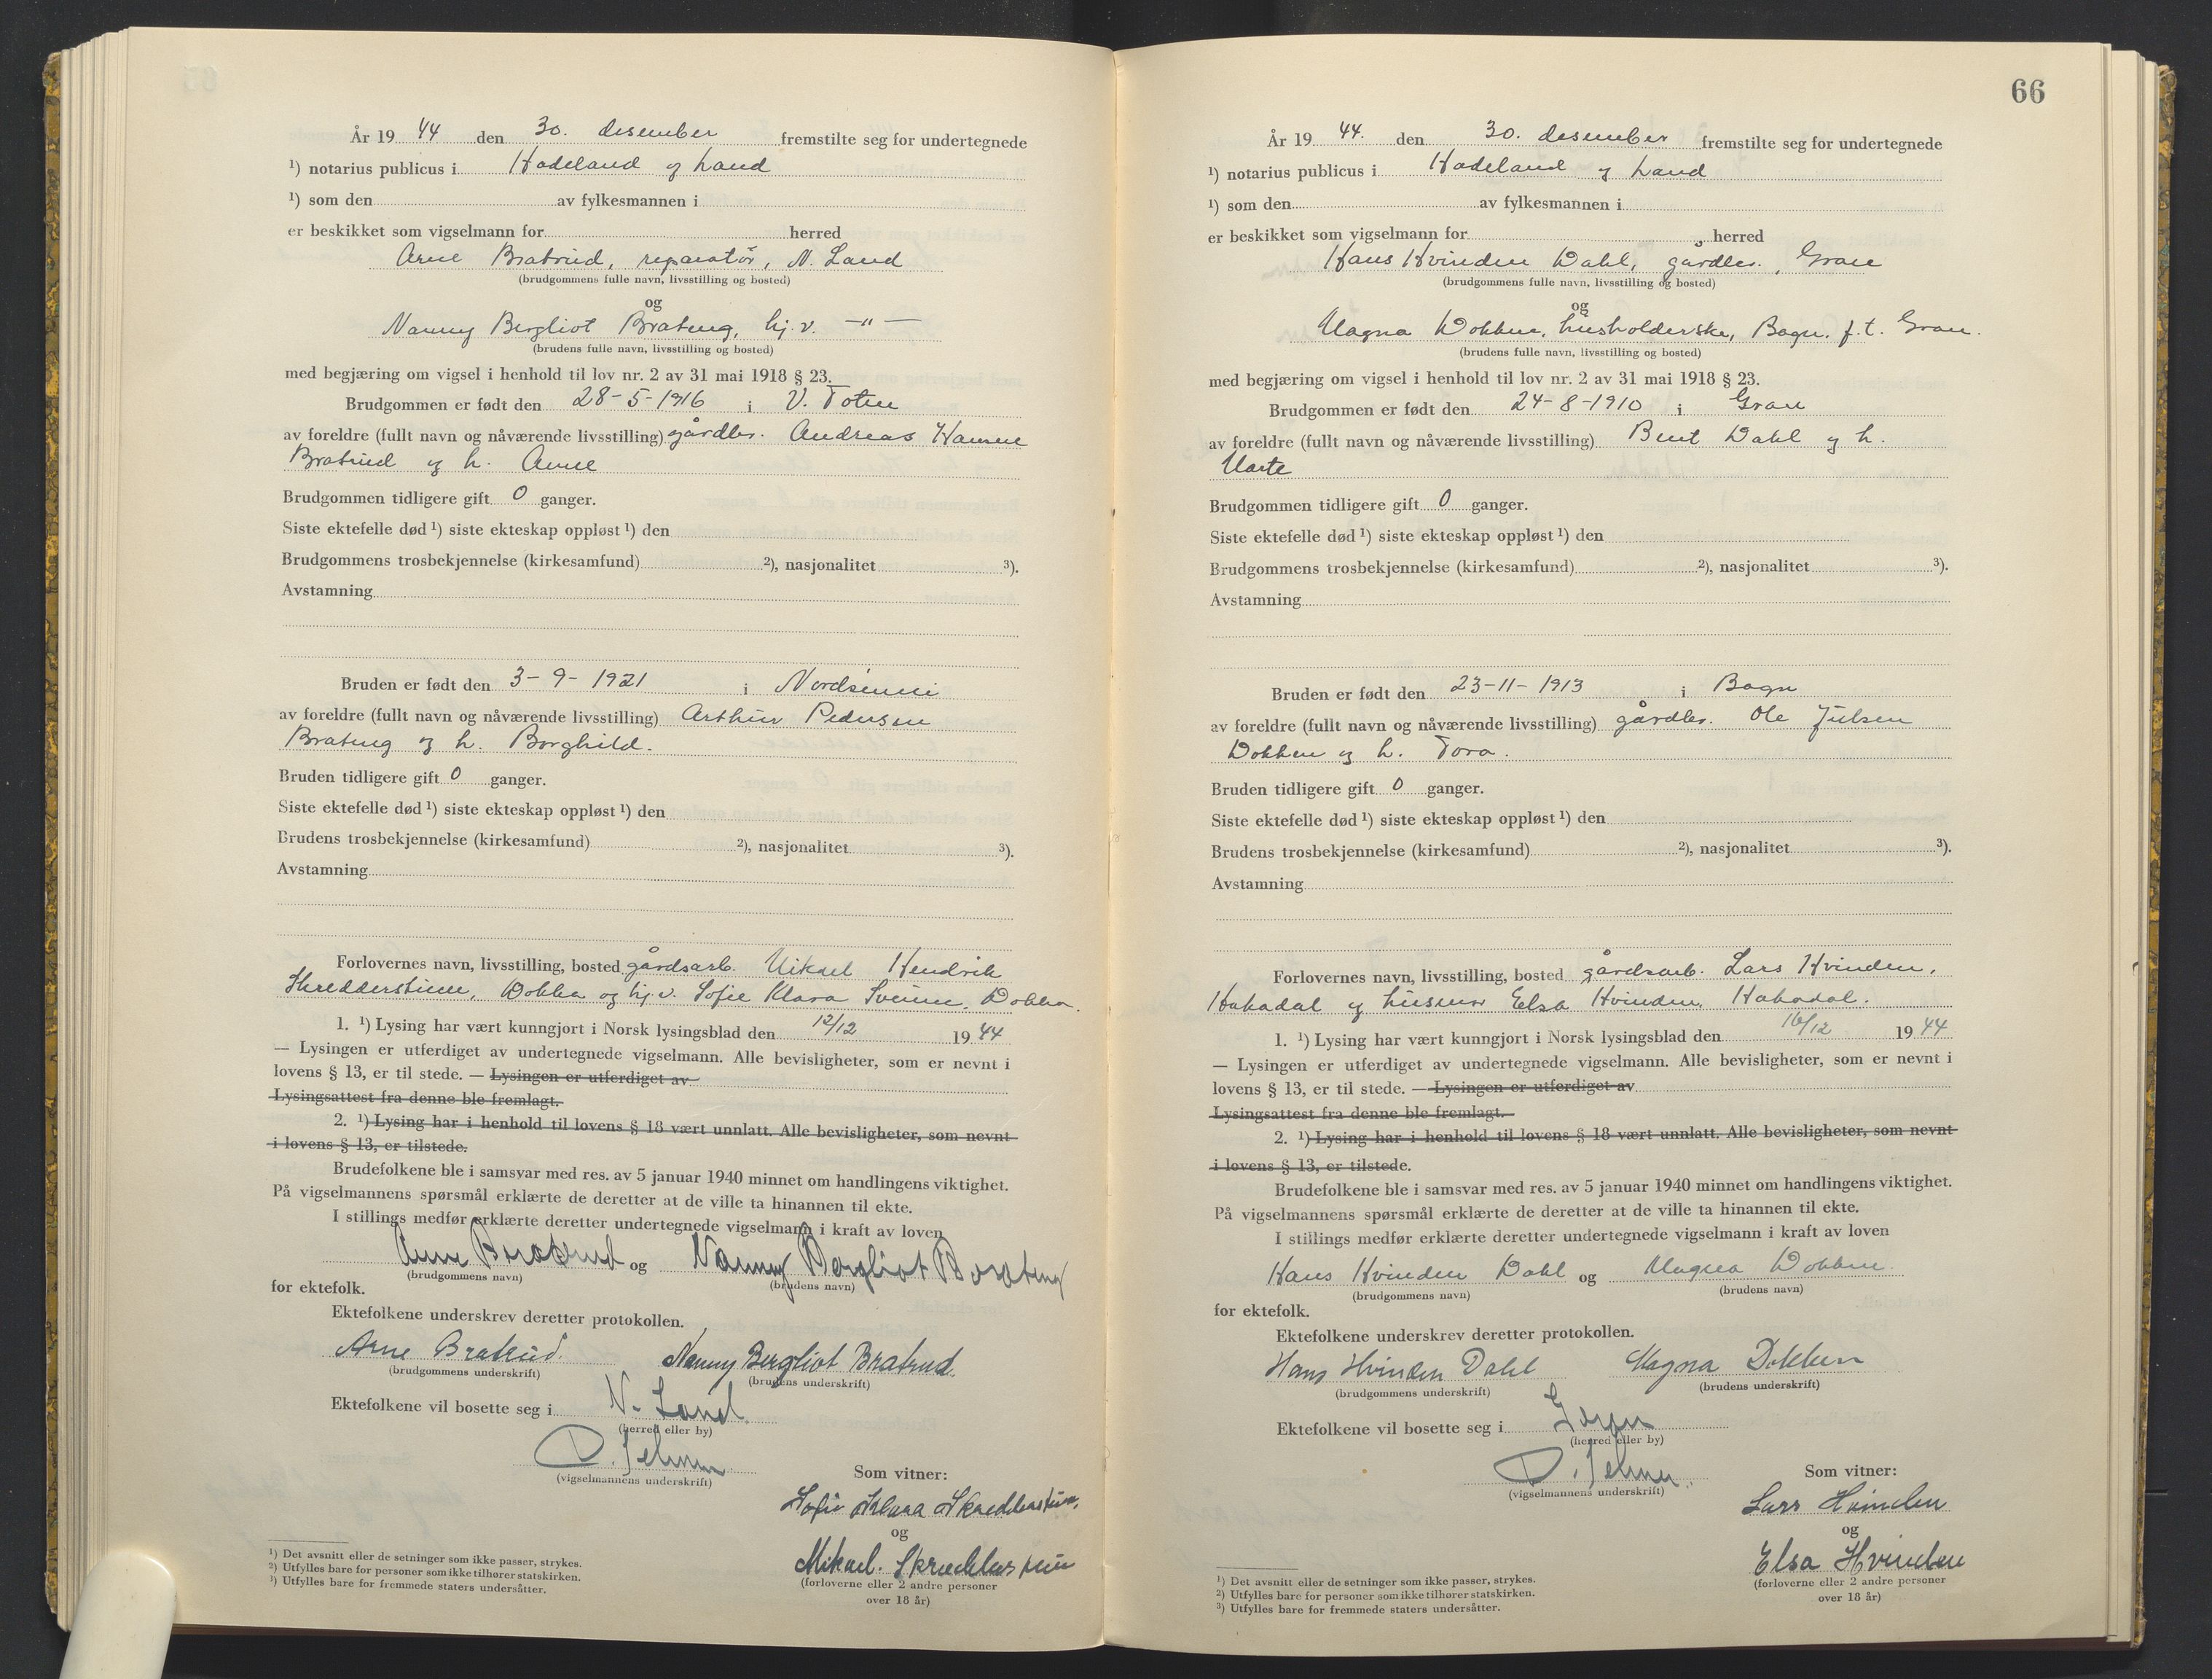 År 19 44 den 30. desember fremstilte seg for undertegnede
¹) notarius publicus i Hadeland og Land
¹) som den av fylkesmannen i
er beskikket som vigselmann for herred
Arne Bratrud, reparatør, N. Land
(brudgommens fulle navn, livsstilling og bosted)
og
Nanny Bergliot Brateng, hj.v. —"—
(brudens fulle navn, livsstilling og bosted)
med begjæring om vigsel i henhold til lov nr. 2 av 31 mai 1918 § 23.
Brudgommen er født den 28-5-1916 i V. Toten
av foreldre (fullt navn og nåværende livsstilling) gårdbr. Andreas Hansen
Bratrud og h. Anne
Brudgommen tidligere gift 0 ganger.
Siste ektefelle død ¹) siste ekteskap oppløst ¹) den
Brudgommens trosbekjennelse (kirkesamfund) ²), nasjonalitet ³).
Avstamning
Bruden er født den 3-9-1921 i Nordsinni
av foreldre (fullt navn og nåværende livsstilling) Arthur Pedersen
Brateng og h. Borghild.
Bruden tidligere gift 0 ganger.
Siste ektefelle død ¹) siste ekteskap oppløst ¹) den
Brudens trosbekjennelse (kirkesamfund) ²), nasjonalitet ³).
Avstamning
Forlovernes navn, livsstilling, bosted gårdsarb. Mikael Hendrik
Skredderstuen, Dokka og hj.v. Sofie Klara Dokka.
1. ¹) Lysing har vært kunngjort i Norsk lysingsblad den 12/12 19 44
— Lysingen er utferdiget av undertegnede vigselmann. Alle bevisligheter, som er nevnt i
lovens § 13, er til stede. — Lysingen er utferdiget av
Lysingsattest fra denne ble fremlagt.
2. ¹) Lysing har i henhold til lovens § 18 vært unnlatt. Alle bevisligheter, som nevnt
i lovens § 13, er tilstede.
Brudefolkene ble i samsvar med res. av 5 januar 1940 minnet om handlingens viktighet.
På vigselmannens spørsmål erklærte de deretter at de ville ta hinannen til ekte.
I stillings medfør erklærte deretter undertegnede vigselmann i kraft av loven
Arne Bratrud og Nanny Bergliot Brateng
(brudgommens navn) (brudens navn)
for ektefolk.
Ektefolkene underskrev deretter protokollen.
Arne Bratrud. Nanny Bergliot Bratrud.
(brudgommens underskrift) (brudens underskrift)
Ektefolkene vil bosette seg i N. Land
(herred eller by)
(vigselmannens underskrift)
Som vitner:
Sofie Klara Skredderstuen.
og
Mikael. Skredderstuen
(forloverne eller 2 andre personer
over 18 år)
¹) Det avsnitt eller de setninger som ikke passer, strykes.
²) Utfylles bare for personer som ikke tilhører statskirken.
³) Utfylles bare for fremmede staters undersåtter.
66
År 19 44. den 30. desember fremstilte seg for undertegnede
¹) notarius publicus i Hadeland og Land
¹) som den av fylkesmannen i
er beskikket som vigselmann for herred
Hans Hvinden Dahl, gårdbr., Gran
(brudgommens fulle navn, livsstilling og bosted)
og
Magna Dokken, husholderske, Bagn, f.t. Gran.
(brudens fulle navn, livsstilling og bosted)
med begjæring om vigsel i henhold til lov nr. 2 av 31 mai 1918 § 23.
Brudgommen er født den 24-8-1910 i Gran
av foreldre (fullt navn og nåværende livsstilling) Bent Dahl og h.
Marte
Brudgommen tidligere gift 0 ganger.
Siste ektefelle død ¹) siste ekteskap oppløst ¹) den
Brudgommens trosbekjennelse (kirkesamfund) ²), nasjonalitet ³).
Avstamning
Bruden er født den 23-11-1913 i Bagn
av foreldre (fullt navn og nåværende livsstilling) gårdbr. Ole Julsen
Dokken og h. Tora.
Bruden tidligere gift 0 ganger.
Siste ektefelle død ¹) siste ekteskap oppløst ¹) den
Brudens trosbekjennelse (kirkesamfund) ²), nasjonalitet ³).
Avstamning
Forlovernes navn, livsstilling, bosted gårdsarb. Lars Hvinden,
Hakadal og husmor Elsa Hvinden, Hakadal.
1. ¹) Lysing har vært kunngjort i Norsk lysingsblad den 16/12 19 44
— Lysingen er utferdiget av undertegnede vigselmann. Alle bevisligheter, som er nevnt i
lovens § 13, er til stede. — Lysingen er utferdiget av
Lysingsattest fra denne ble fremlagt.
2. ¹) Lysing har i henhold til lovens § 18 vært unnlatt. Alle bevisligheter, som nevnt
i lovens § 13, er tilstede.
Brudefolkene ble i samsvar med res. av 5 januar 1940 minnet om handlingens viktighet.
På vigselmannens spørsmål erklærte de deretter at de ville ta hinannen til ekte.
I stillings medfør erklærte deretter undertegnede vigselmann i kraft av loven
Hans Hvinden Dahl og Magna Dokken
(brudgommens navn) (brudens navn)
for ektefolk.
Ektefolkene underskrev deretter protokollen.
Hans Hvinden Dahl Magna Dokken
(brudgommens underskrift) (brudens underskrift)
Ektefolkene vil bosette seg i Gran
(herred eller by)
(vigselmannens underskrift)
Som vitner:
Lars Hvinden
og
Elsa Hvinden
(forloverne eller 2 andre personer
over 18 år)
¹) Det avsnitt eller de setninger som ikke passer, strykes.
²) Utfylles bare for personer som ikke tilhører statskirken.
³) Utfylles bare for fremmede staters undersåtter.